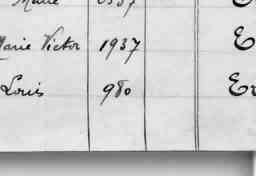 Marie Victor 1937 E
Louis 980 Er